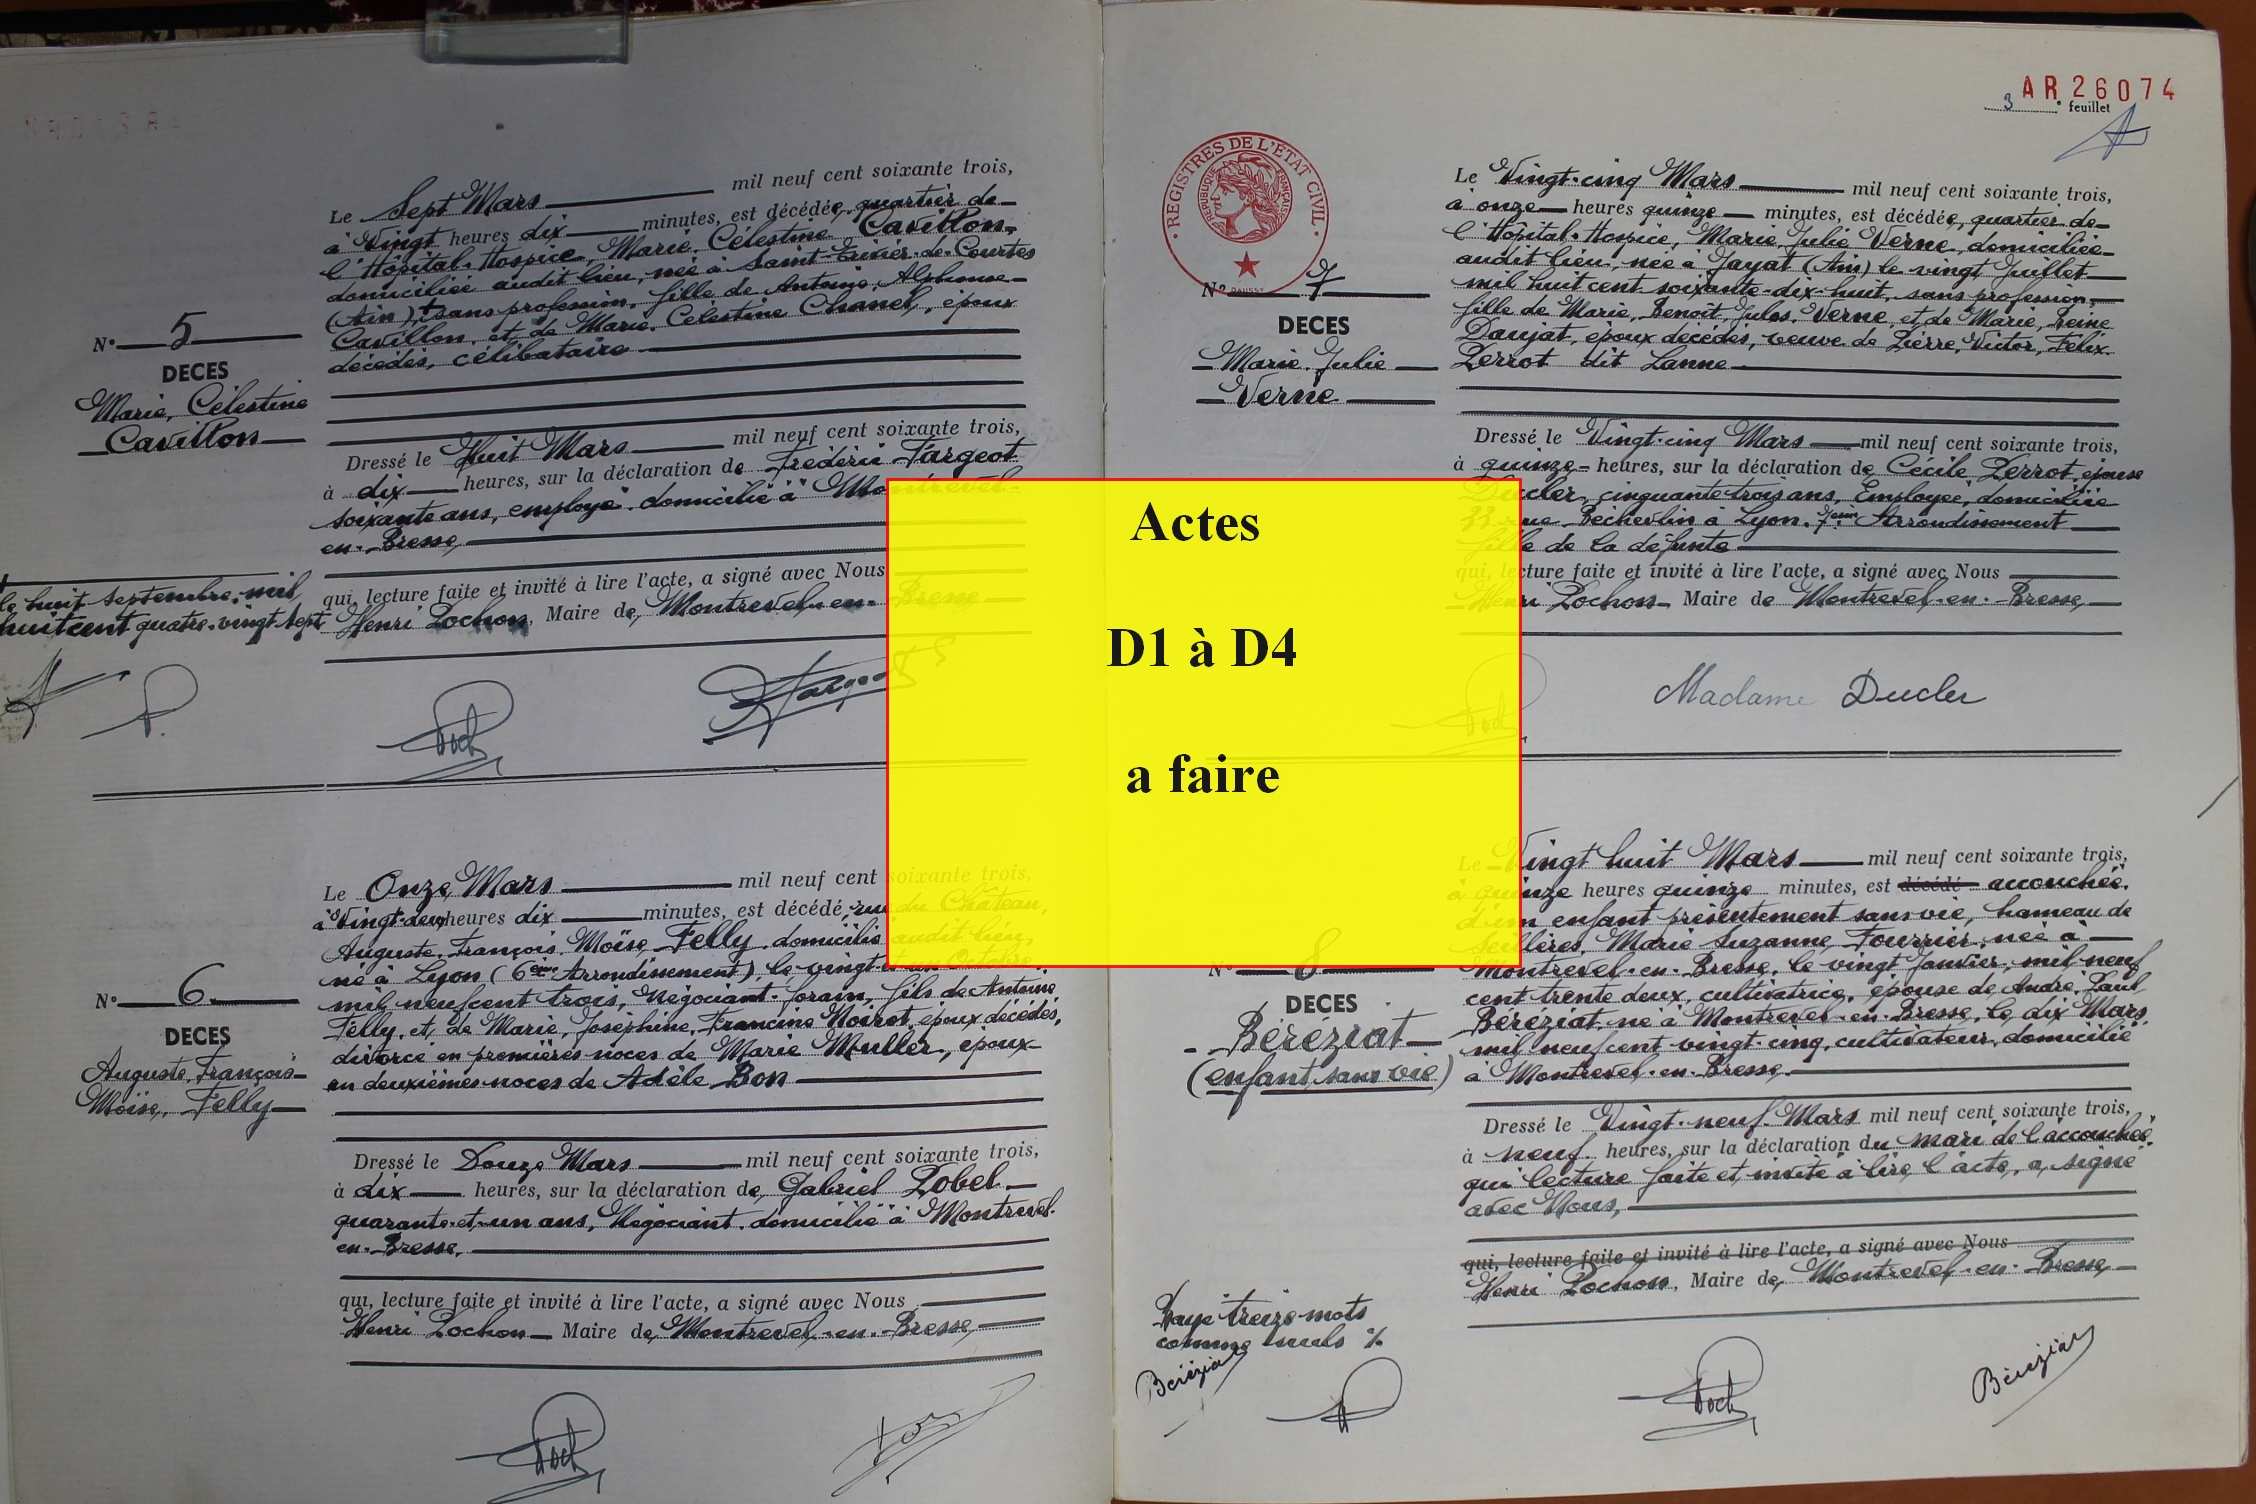 Le Sept Mars mil neuf cent soixante trois,
à Vingt heures dix minutes, est décédée, quartier de
l'Hôpital-Hospice, Marie, Célestine Cavillon,
domiciliée audit lieu, née à Saint-Trivier-de-Courtes
(Ain), sans profession, fille de Antoine, Alphonse
Cavillon, et de Marie, Célestine Chanel, époux
décédés, célibataire
N° 5
DECES
Marie, Célestine
Cavillon
Dressé le Huit Mars mil neuf cent soixante trois,
à dix heures, sur la déclaration de Frédéric Fargeot
soixante ans, employé, domicilié à Montrevel-
en-Bresse,
qui, lecture faite et invité à lire l'acte, a signé avec Nous
Henri Pochon, Maire de Montrevel-en-Bresse
le huit septembre, mil
huit cent quatre-vingt-sept
Le Onze Mars mil neuf cent soixante trois,
à Vingt-deux heures dix minutes, est décédé, rue du Château,
Auguste, François, Moïse, Felly, domicilié audit lieu,
né à Lyon (6ème Arrondissement), le vingt et un Octobre
mil neuf cent trois, Négociant-forain, fils de Antoine
Felly, et de Marie, Joséphine, Francine Noirot, époux décédés,
divorcé en premières noces de Marie Muller, époux
en deuxièmes noces de Adèle Bon
N° 6
DECES
Auguste, François
Moïse, Felly
Dressé le Douze Mars mil neuf cent soixante trois,
à dix heures, sur la déclaration de Gabriel Pobel
quarante-et-un ans, Négociant, domicilié à Montrevel-
en-Bresse,
qui, lecture faite et invité à lire l'acte, a signé avec Nous
Henri Pochon Maire de Montrevel-en-Bresse,
AR 26074
3 ° feuillet
REGISTRES DE L'ETAT CIVIL
REPUBLIQUE FRANÇAISE
Le Vingt-cinq Mars mil neuf cent soixante trois,
à onze heures quinze minutes, est décédée, quartier de
l'Hôpital-Hospice, Marie, Julie Verne, domiciliée
audit lieu, née à Jayat (Ain) le vingt Juillet
mil huit cent soixante-dix-huit, sans profession,
fille de Marie, Benoît, Jules, Verne, et de Marie, Reine
Daujat, époux décédés, veuve de Pierre, Victor, Félix
Perrot dit Lanne
N° 7
DECES
Marie, Julie
Verne
Dressé le Vingt-cinq Mars mil neuf cent soixante trois,
à quinze heures, sur la déclaration de Cécile Perrot, épouse
Ducler, cinquante trois ans, Employée, domiciliée
33 rue Béchevelin à Lyon, 7ème Arrondissement
fille de la défunte
qui, lecture faite et invité à lire l'acte, a signé avec Nous
Henri Pochon Maire de Montrevel-en-Bresse,
Madame Ducler
Actes
D1 à D4
a faire
Le Vingt huit Mars mil neuf cent soixante trois,
à quinze heures quinze minutes, est décédé accouchée,
d'un enfant présentement sans vie, hameau de
Seillères, Marie Suzanne Fourrier, née à
Montrevel-en-Bresse, le vingt Janvier, mil neuf
cent trente deux, cultivatrice, épouse de André, Paul
Béréziat, né à Montrevel-en-Bresse, le dix Mars
mil neuf cent vingt-cinq, cultivateur, domicilié
à Montrevel-en-Bresse
N° 8
DECES
Béréziat
(enfant sans vie)
Dressé le Vingt-neuf Mars mil neuf cent soixante trois,
à neuf heures, sur la déclaration du mari de l'accouchée,
qui lecture faite et invité à lire l'acte, a signé
avec Nous,
qui, lecture faite et invité à lire l'acte, a signé avec Nous
Henri Pochon, Maire de Montrevel-en-Bresse,
Rayé treize mots
comme nuls
Béréziat
Béréziat